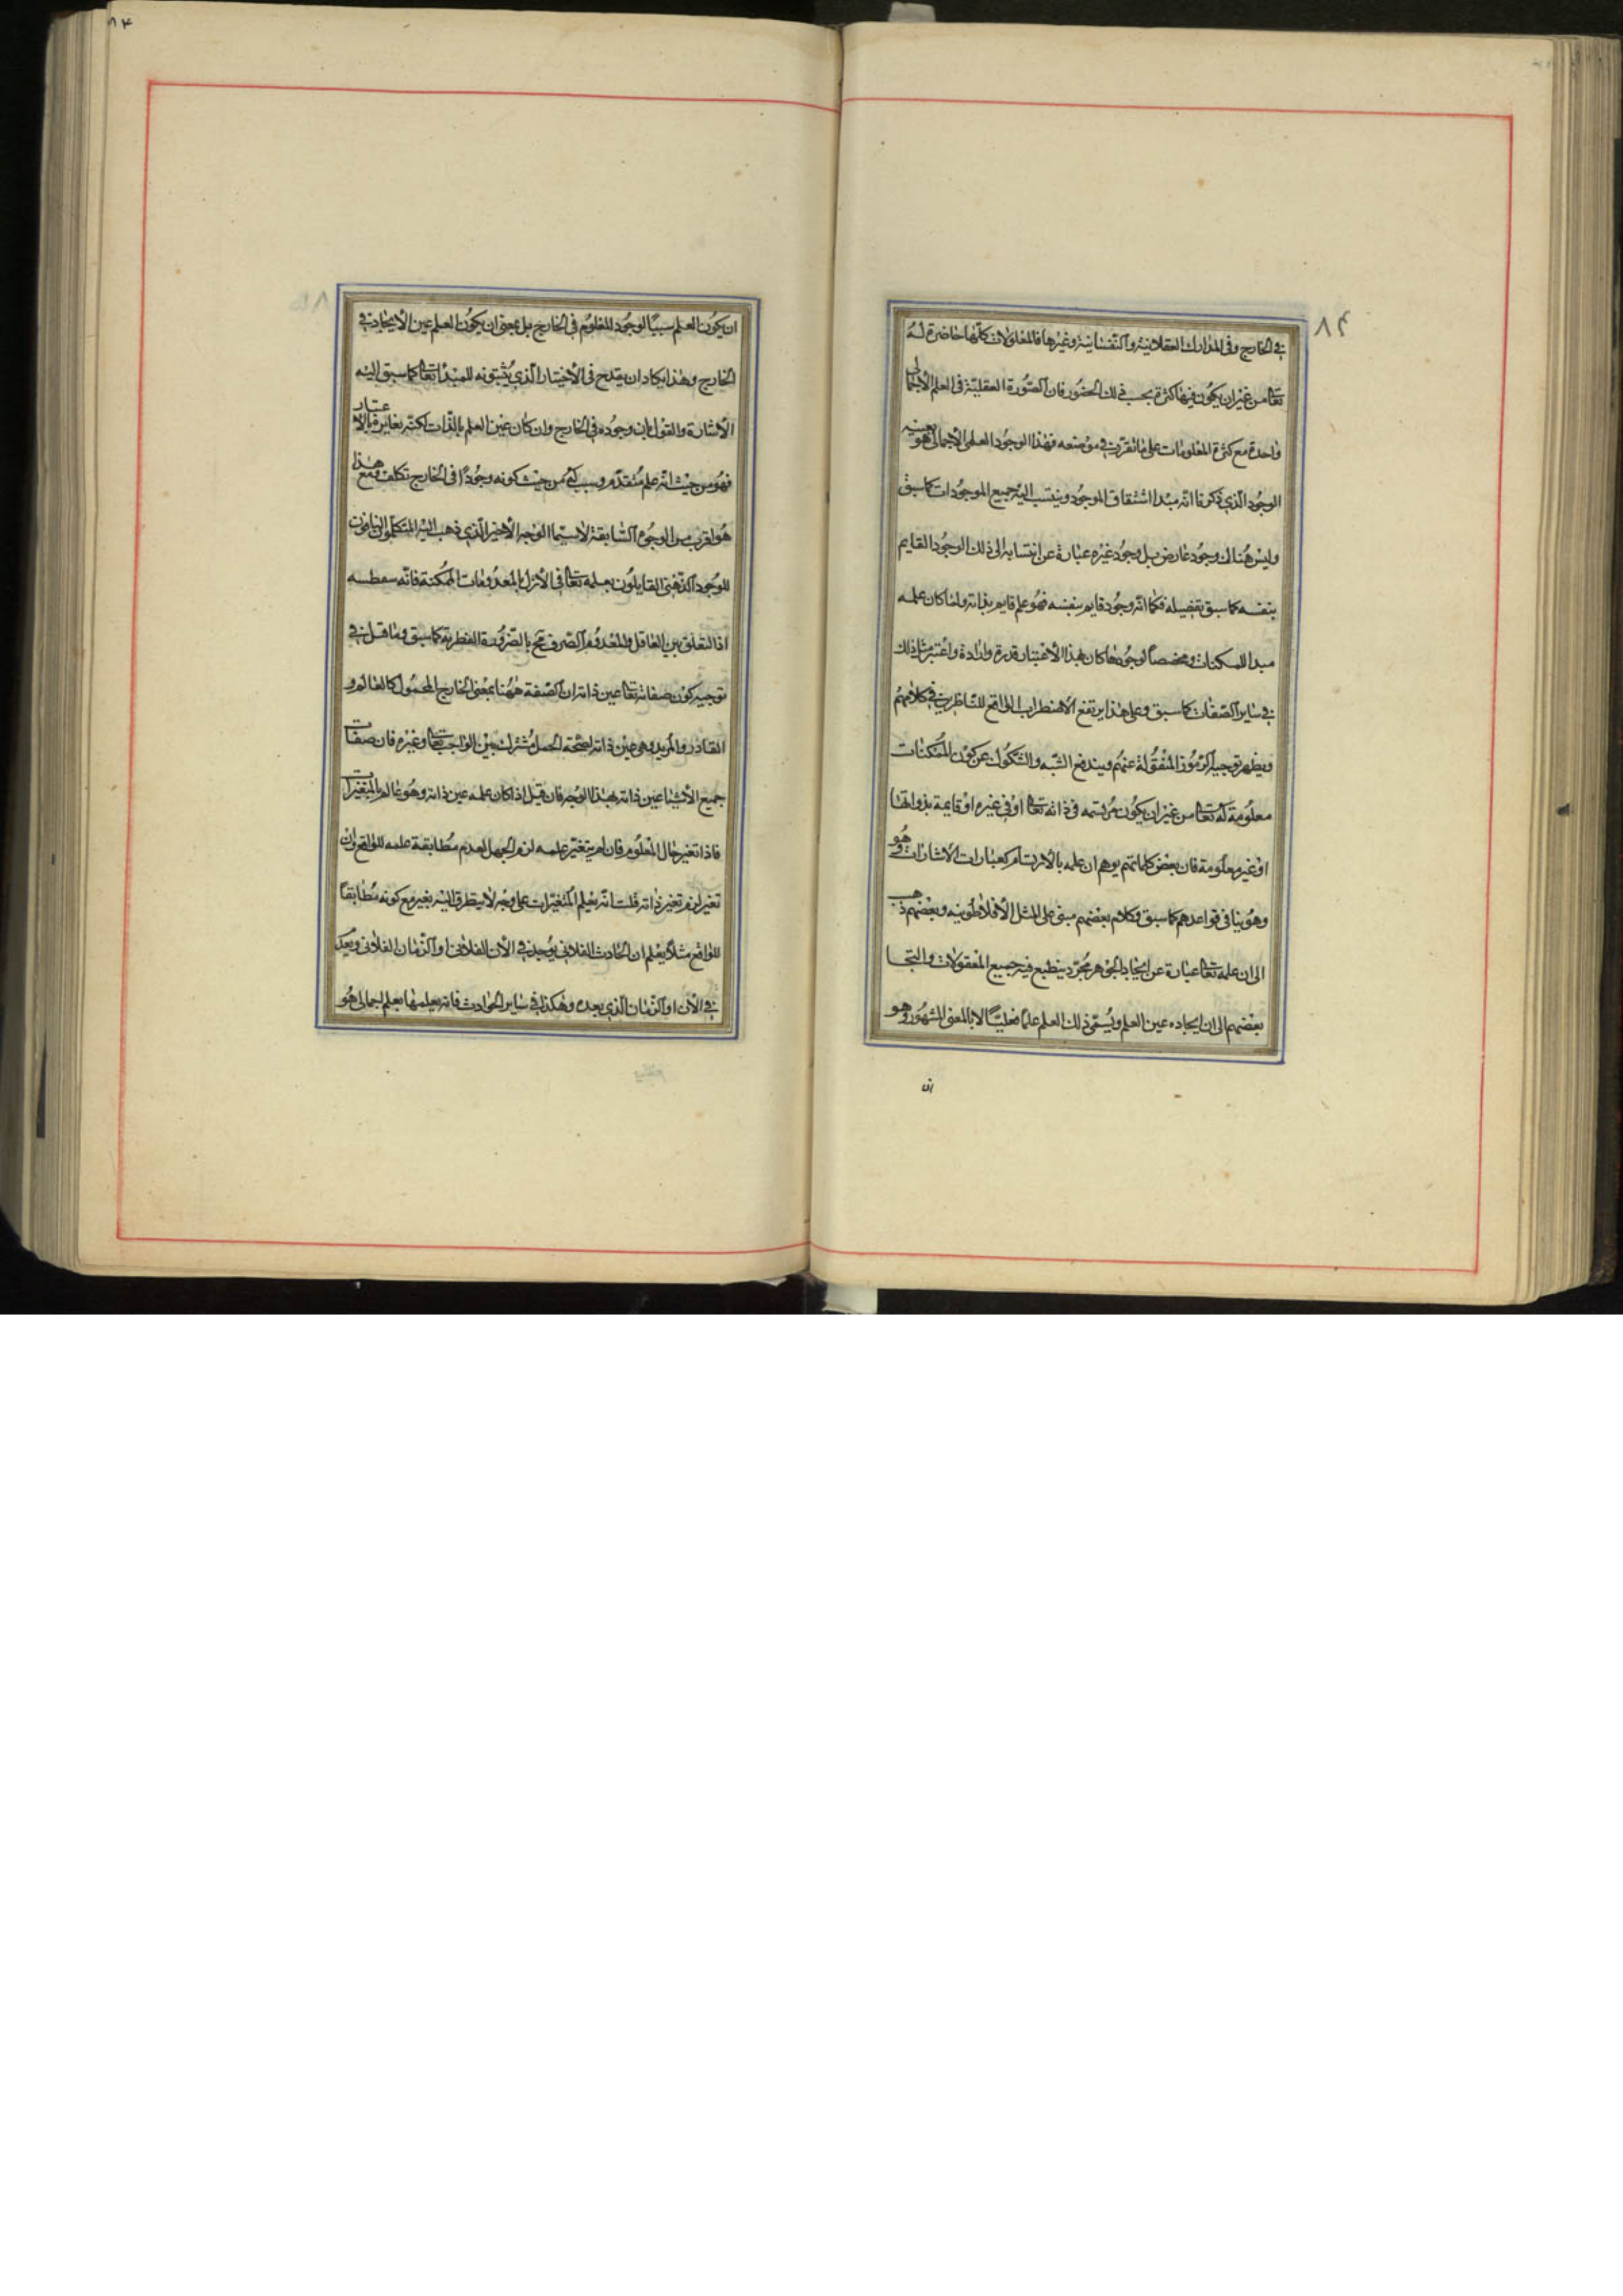 ٨٤
في الخارج وفي المدارك العقلانية والنفسانية وغيرها فالمعلولات كلّها حاضرة له
تعالى من غير ان يكون فيها كثرة بحسب ذلك الحضور فان الصّورة العقليّة في العلم الاجمالى
واحدة مع كثرة المعلومات على ما تقرّر في موضعه فهذا الوجود العلمى الاجمالى هو بعينه
الوجود الّذي ذكرنا انّه مبدا اشتقاق الموجود وينتسب اليه جميع الموجودات كما سبق
وليس هناك وجود عارض بل وجود غيره عبارة عن انتسابه الى ذلك الوجود القايم
بنفسه كما سبق تفصيله فكما انّه وجود قايم بنفسه فهو علم قايم بذاته ولما كان علمه
مبدا للممكنات ومخصصاً لوجودها كان بهذا الاعتبار قدرة وارادة واعتبر مثل ذلك
في ساير الصّفات كما سبق وعلى هذا يرتفع الاضطراب الواقع للنّاظرين في كلامهم
ويظهر توجيه الرّموز المنقولة عنهم ويندفع الشّبه والشّكوك عن كون الممكنات
معلومة له تعالى من غير ان يكون مرتسمة في ذاته تعالى او في غيره او قايمة بذواتها
او غير معلومة فان بعض كلماتهم يوهم ان علمه بالارتسام كعبارات الاشارات وهو
وهو ينافي قواعدهم كما سبق وكلام بعضهم مبنى على المثل الافلاطونيه وبعضهم ذهب
الى ان علمه تعالى عبارة عن ايجاد الجوهر مجرّد ينطبع فيه جميع المعقولات والتجا
بعضهم الى ان ايجاده عين العلم ويسمّى ذلك العلم علما فعليّا لا بالمعنى المشهور وهو
ان
٨٤
ان يكون العلم سببًا لوجود المعلوم في الخارج بل بمعنى ان يكون العلم عين الايجاد في
الخارج وهذا يكاد ان يقدح في الاختيار الّذي يثبتونه للمبدأ تعالى كما سبق اليه
الاشارة والقول بان وجوده في الخارج وان كان عين العلم بالذّات لكنّه يغايره بالاعتبار
فهو من حيث انّه علم متقدّم وسبب له من حيث كونه وجودًا في الخارج تكلف ومع هذا
هو اقرب من الوجوه السّابقة لا سيّما الوجه الاخير الّذي ذهب اليه المتكلّمون النافون
للوجود الذّهنى القايلون بعلمه تعالى في الازل بالمعدومات الممكنة فانّه سفطسه
اذ التعلق بين العاقل والمعدوم الصّرف مح بالضرورة الفطرية كما سبق وما قيل في
توجيه كون صفاته تعالى عين ذاته ان الصّفة ههنا بمعنى الخارج المحمول كالعالم و
القادر والمريد وهى عين ذاته لصحّة الحمل مشترك بين الواجب تعالى وغيره فان صفات
جميع الاشيا عين ذاته بهذا الوجه فان قيل اذا كان علمه عين ذاته وهو عالم بالمتغيّرات
فاذا تغير حال المعلوم فان لم يتغيّر علمه لزم الجهل لعدم مطابقة علمه للواقع وان
تغير لزم تغير ذاته قلت انّه يعلم المتغيّرات على وجه لا يتطرق اليه تغير مع كونه مطابقا
للواقع مثلا يعلم ان الحادث الفلاني يوجد في الان الفلانى او الزّمان الفلانى ويعدم
في الان او الزّمان الّذي بعده وهكذا في ساير الحوادث فانه يعلمها بعلم اجمالى هو